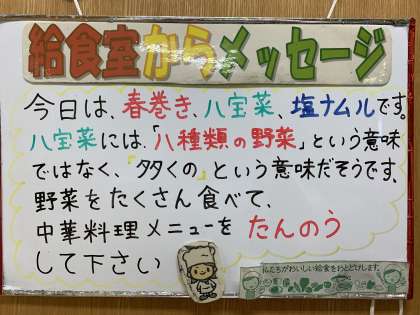 給食室からメッセージ
今日は、春巻き、八宝菜、塩ナムルです。
八宝菜には、「八種類の野菜」という意味
ではなく、『多くの』という意味だそうです。
野菜をたくさん食べて、
中華料理メニューを たんのう
して下さい
私たちがおいしい給食をおとどけします。